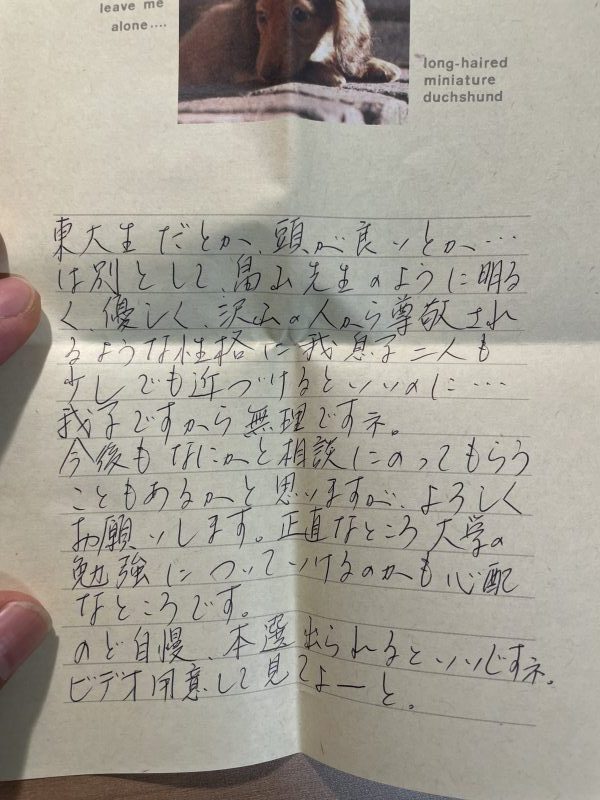 leave me
alone....
long-haired
miniature
duchshund
東大生だとか、頭が良いとか…
は別として、畠山先生のように明る
く、優しく、沢山の人から尊敬され
るような性格に我息子二人も
少しでも近づけるといいのに…
我子ですから無理ですネ。
今後もなにかと相談にのってもらう
こともあるかと思いますが、よろしく
お願いします。正直なところ大学の
勉強についていけるのかも心配
なところです。
のど自慢、本選出られるといいですネ。
ビデオ用意して見てよーと。